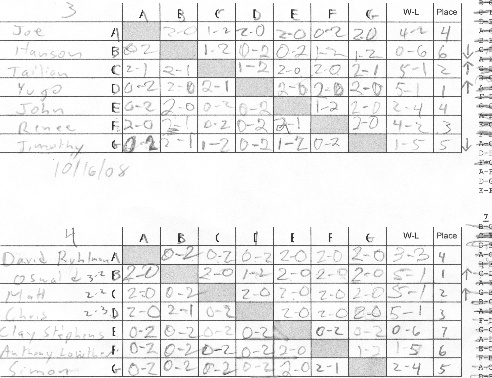 3 A B C D E F G W-L Place
Joe A 2-0 1-2 2-0 2-0 0-2 2-0 4-2 4
Hanson B 0-2 1-2 0-2 0-2 1-2 1-2 0-6 6
C 2-1 2-1 1-2 2-0 2-0 2-1 5-1 2
Yugo D 0-2 2-0 2-1 2-0 2-0 2-0 5-1 1
John E 0-2 2-0 0-2 0-2 1-2 2-0 2-4 4
Renee F 2-0 2-1 0-2 0-2 2-1 2-0 4-2 3
Timothy G 0-2 2-1 1-2 0-2 1-2 0-2 1-5 5
10/16/08
4 A B C D E F G W-L Place
David A 0-2 0-2 0-2 2-0 2-0 2-0 3-3 4
B 2-0 2-0 1-2 2-0 2-0 2-0 5-1 1
Matt 2-2 C 2-0 0-2 2-0 2-0 2-0 2-0 5-1 2
Chris 2-3 D 2-0 2-1 0-2 2-0 2-0 2-0 5-1 3
Clay Stephens E 0-2 0-2 0-2 0-2 0-2 0-2 0-6 7
Anthony F 0-2 0-2 0-2 0-2 2-0 1-2 1-5 6
Simon G 0-2 0-2 0-2 0-2 2-0 2-1 2-4 5
7